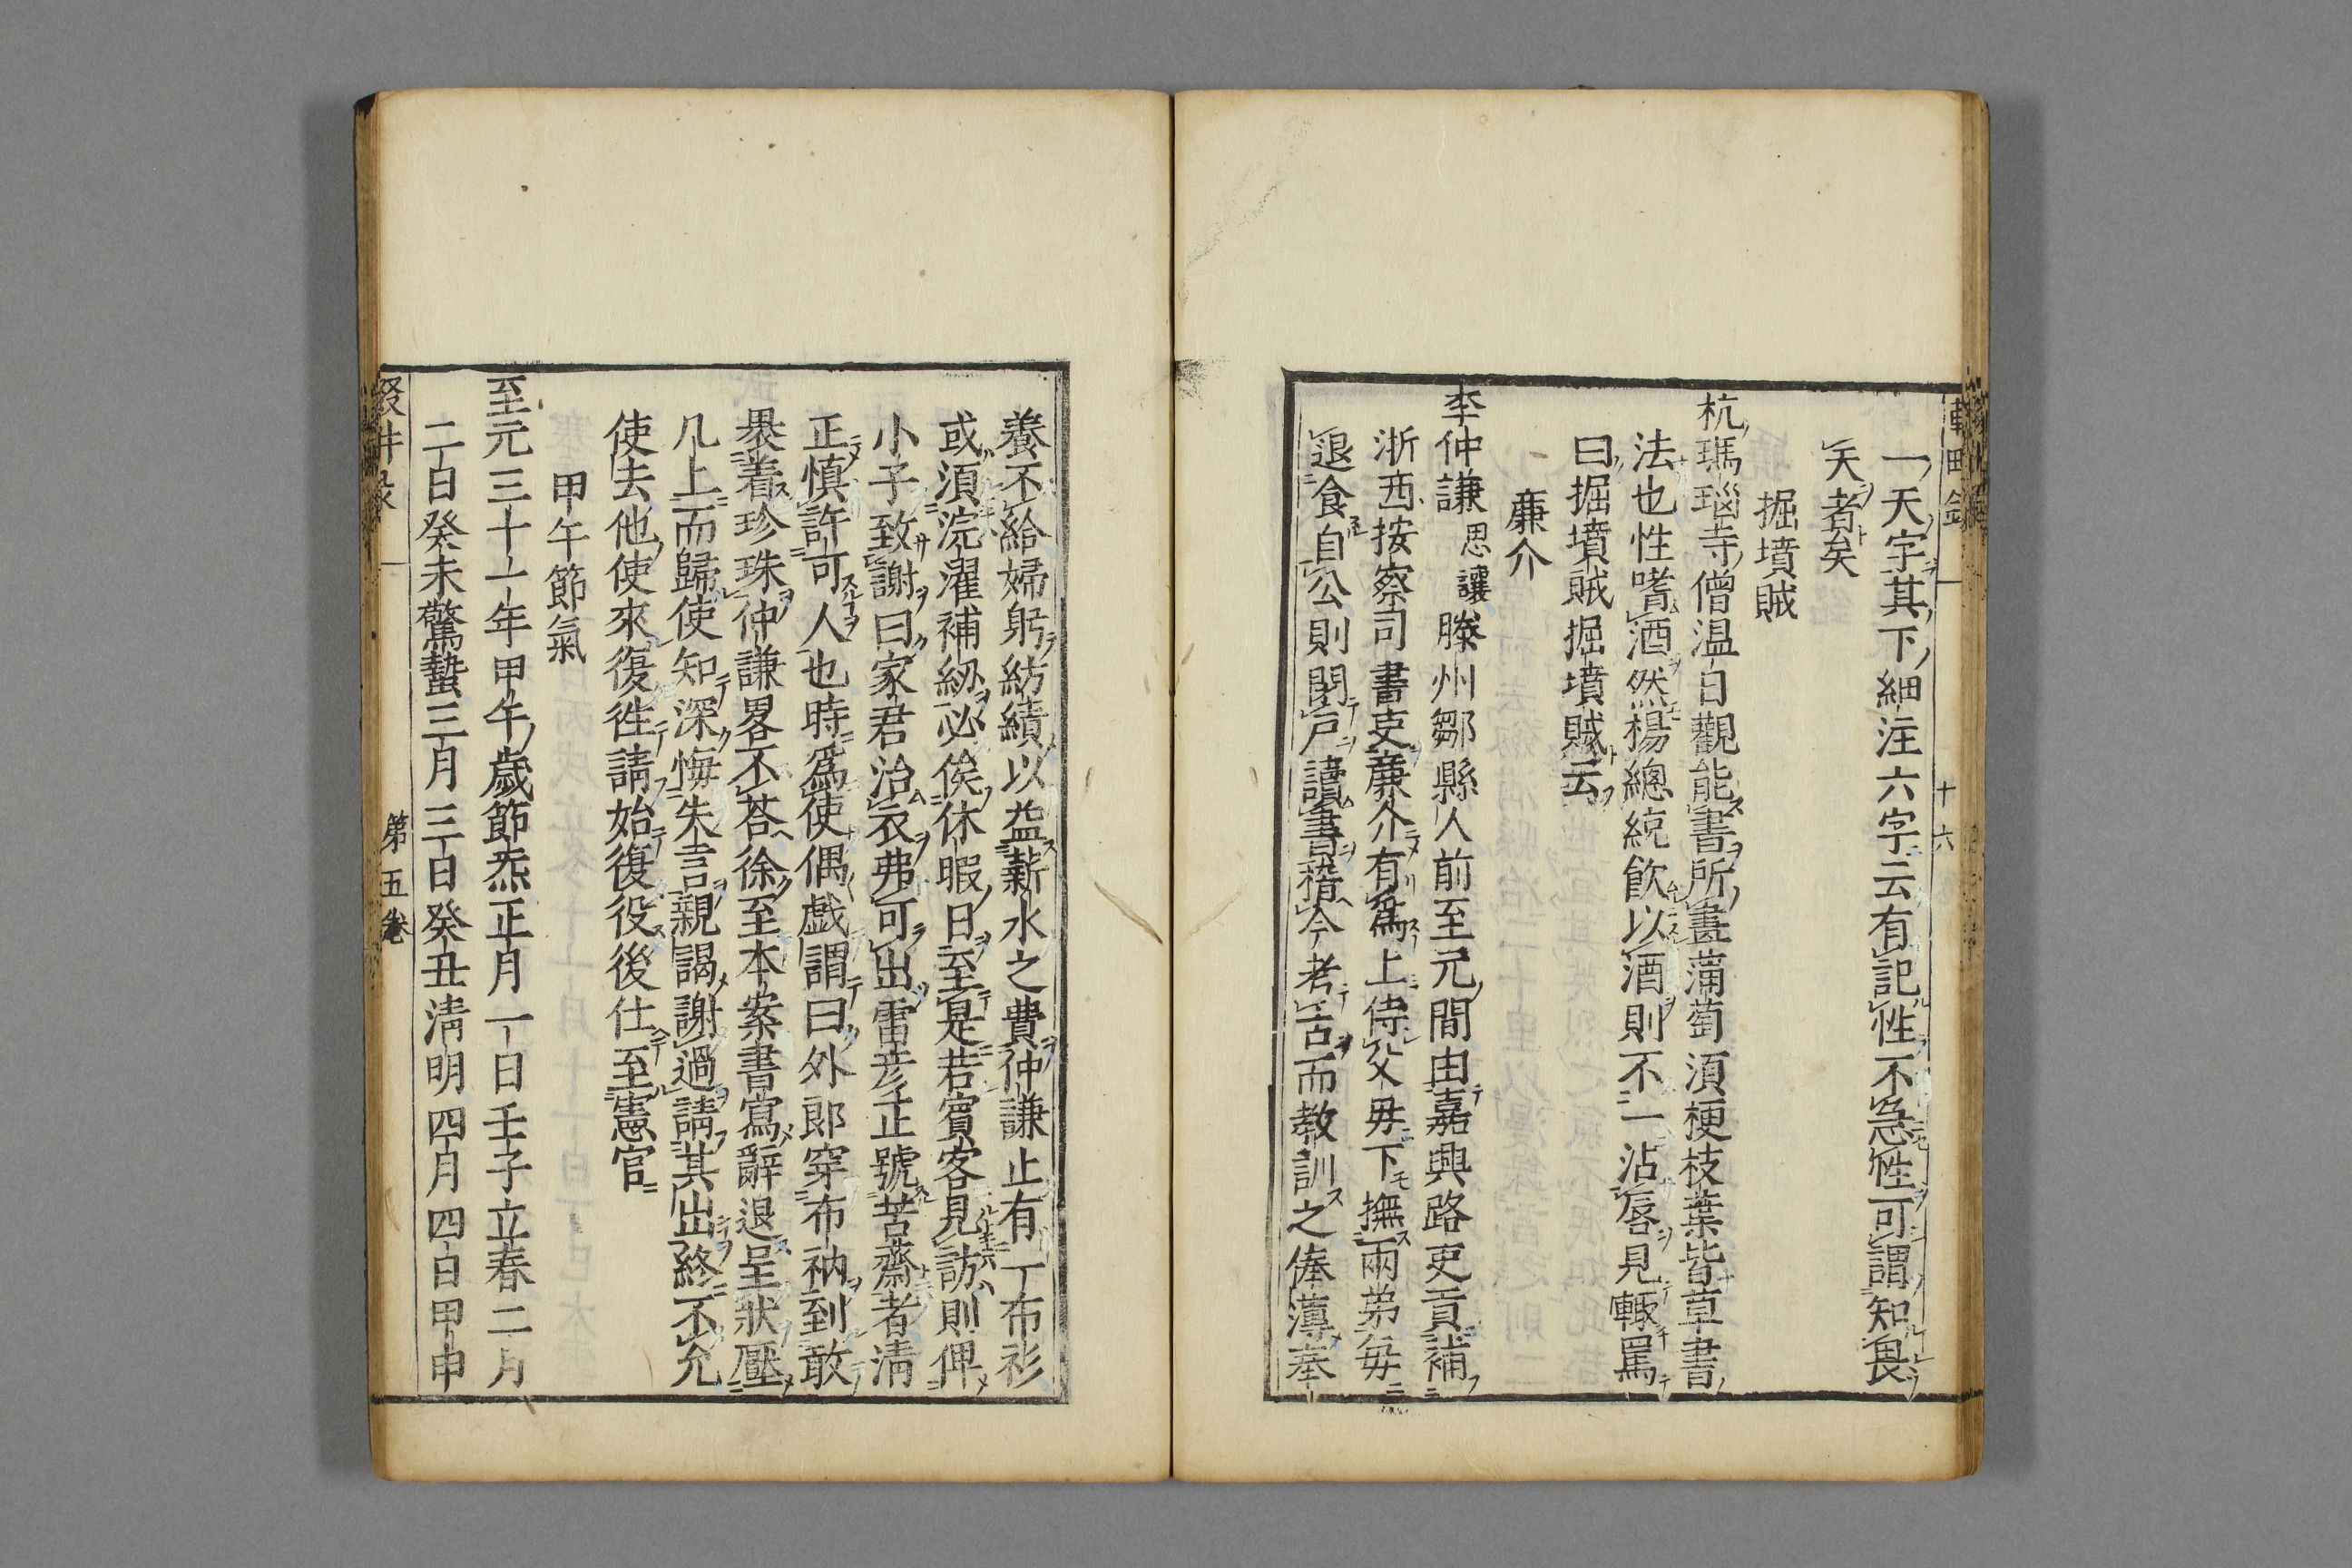 一天字其下細注六字云有記性不急性可謂知畏
天者矣
掘墳賊
杭瑪瑙寺僧温日觀能書所畫蒲萄須梗枝葉皆草書
法也性嗜酒然楊總統飲以酒則不一沾唇見輙罵
曰掘墳賊掘墳賊云
廉介
李仲謙思讓滕州鄒縣人前至元間由嘉興路吏貢補
浙西按察司書吏廉介有爲上侍父毋下撫兩弟毎
退食自公則閉戸讀書稽今考古而教訓之俸薄奉
十六
養不給婦躬紡績以益薪水之費仲謙止有一布衫
或須浣濯補紉必俟休暇日至是若賓客見訪則俾
小子致謝曰家君治衣弗可出雷彦正號苦齋者清
正慎許可人也時爲使偶戯謂曰外郎穿布衲到敢
褁着珍珠仲謙畧不荅徐至本案書寫辭退呈狀壓
几上而歸使知深悔失言親謁謝過請其出終不允
使去他使來復徃請始復役後仕至憲官
甲午節氣
至元三十一年甲午歲節炁正月一日壬子立春二月
二日癸未驚蟄三月三日癸丑淸明四月四日甲申
第五卷